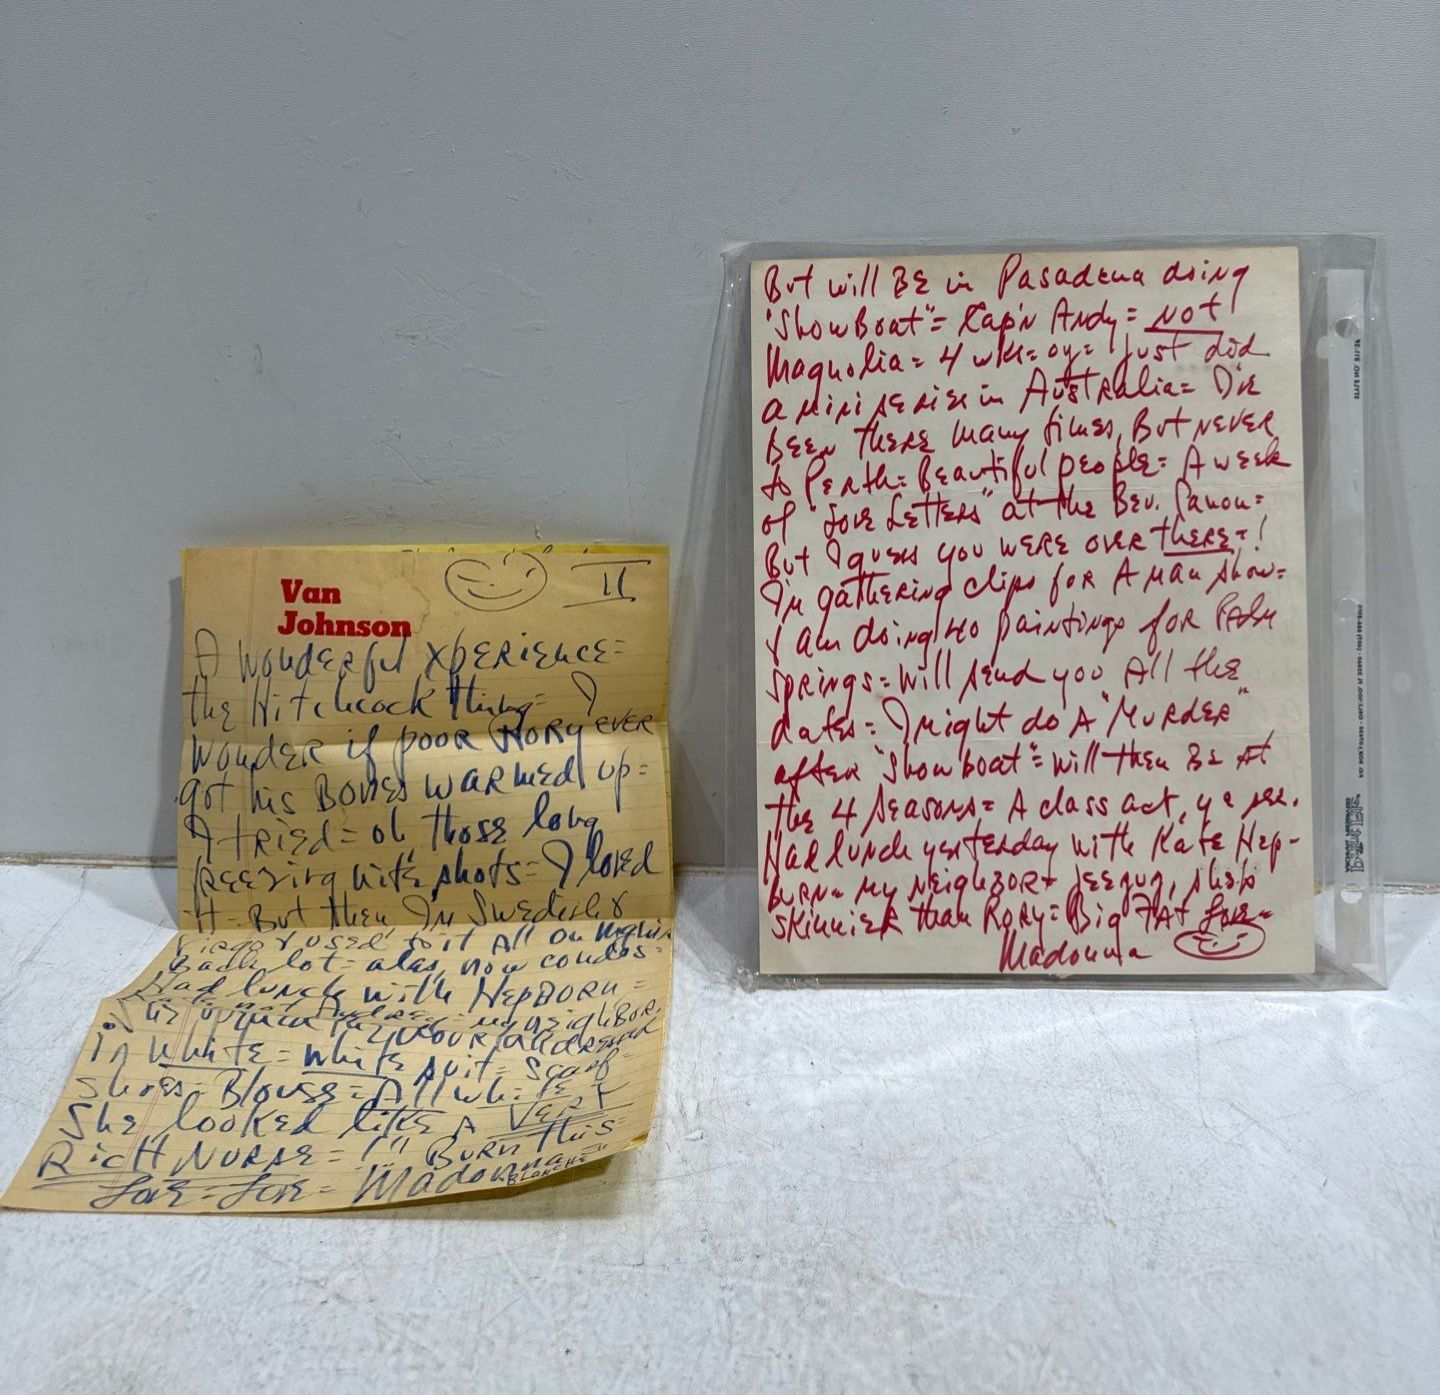 II
Van
Johnson
A wonderful xperience=
the Hitchcock thing= I
wonder if poor Rory ever
got his Bones warmed up=
I tried= oh those long
freezing nite shots= I loved
it- But then I'm Swedish &
used to it All on
Back lot= alas, now condos=
Had lunch with HepBorn=
my neighbor.
in white= white suit= scarf
shoes- Blouse= All white
She looked like A Very
Rich Nurse=!" Burn this=
love= love= Madonna=
"Blanche"
But will BE in Pasadena doing
"ShowBoat"= Kap'n Andy= not
Magnolia= 4 wks= oy= just did
a mini series in Australia= I've
been there many times, But never
to Perth= Beautiful people= A week
of "Love Letters" at the Bev. Canon=
But I guess you were over there=!
I'm gathering clips for A man show=
& am doing 40 paintings for Palm
Springs= will send you All the
dates= I might do A "Murder"
after "Showboat"= will then Be At
the 4 Seasons= A class act, ya see.
Had lunch yesterday with Kate Hep-
burn= my neighbor&
skinnier than Rory= Big FAT love=
Madonna